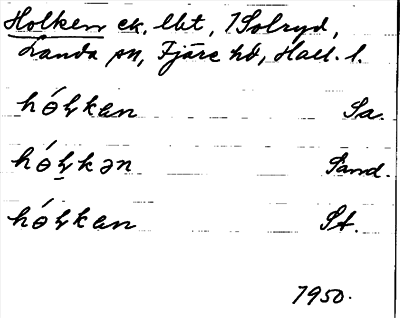 Holken ek, lbt, 1 Solryd,
Landa sn, Fjäre hd, Hall. l.
hɵ́ɫkan Sa.
hɵ́ɫkən Sand.
hɵ́ɫkan St.
1950.